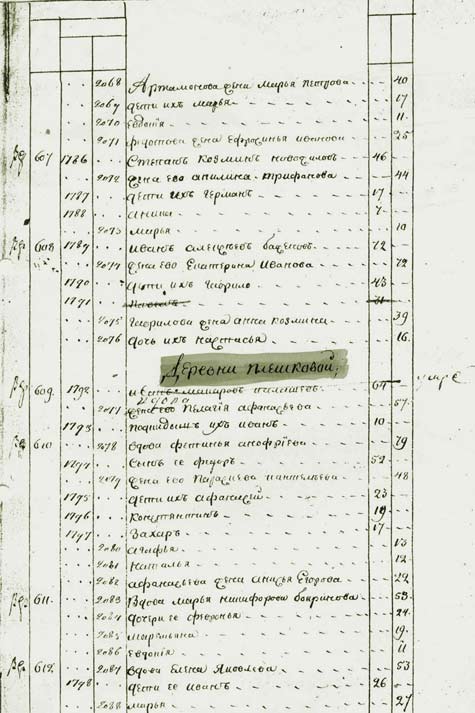 2068 Артамонова жена Марья Петрова 40
2069 дети ихъ Марья 17
2070 Евдокія 11
2071 Федотова жена Ефросинья Иванова 25
607 1786 Степанъ Козминъ 46
2072 жена ево Трифанова 44
1787 дети ихъ Германъ 17
1788 7
2073 Марья 10
608 1789 Иванъ 72
2074 жена ево Екатерина Иванова 72
1790 дети ихъ Гаврило 43
1791 31
2075 Гаврилова жена Анна Козмина 39
2076 дочь ихъ Настасья 16
Деревни Плешковой
609 1792 Макаровъ 69 умре
вдова
2077 Пелагія Афанасьева 57
1793 Иванъ 10
610 2078 вдова Фетинья 79
1794 сынъ ее Федоръ 52
2079 жена ево Парасковья Пантелеева 48
1795 дети ихъ Афанасей 23
1796 Констянтинъ 19
1797 Захаръ 17
2080 Агафья 13
2081 Наталья 12
2082 Афанасьева жена Анисья Егорова 22
611 2083 вдова Марья Никифорова 53
2084 дочери ее Февронья 24
2085 Маремьяна 19
2086 Евдокія 11
612 2087 вдова Елена Яковлева 53
1798 дети ее Иванъ 26
2088 Марья 27